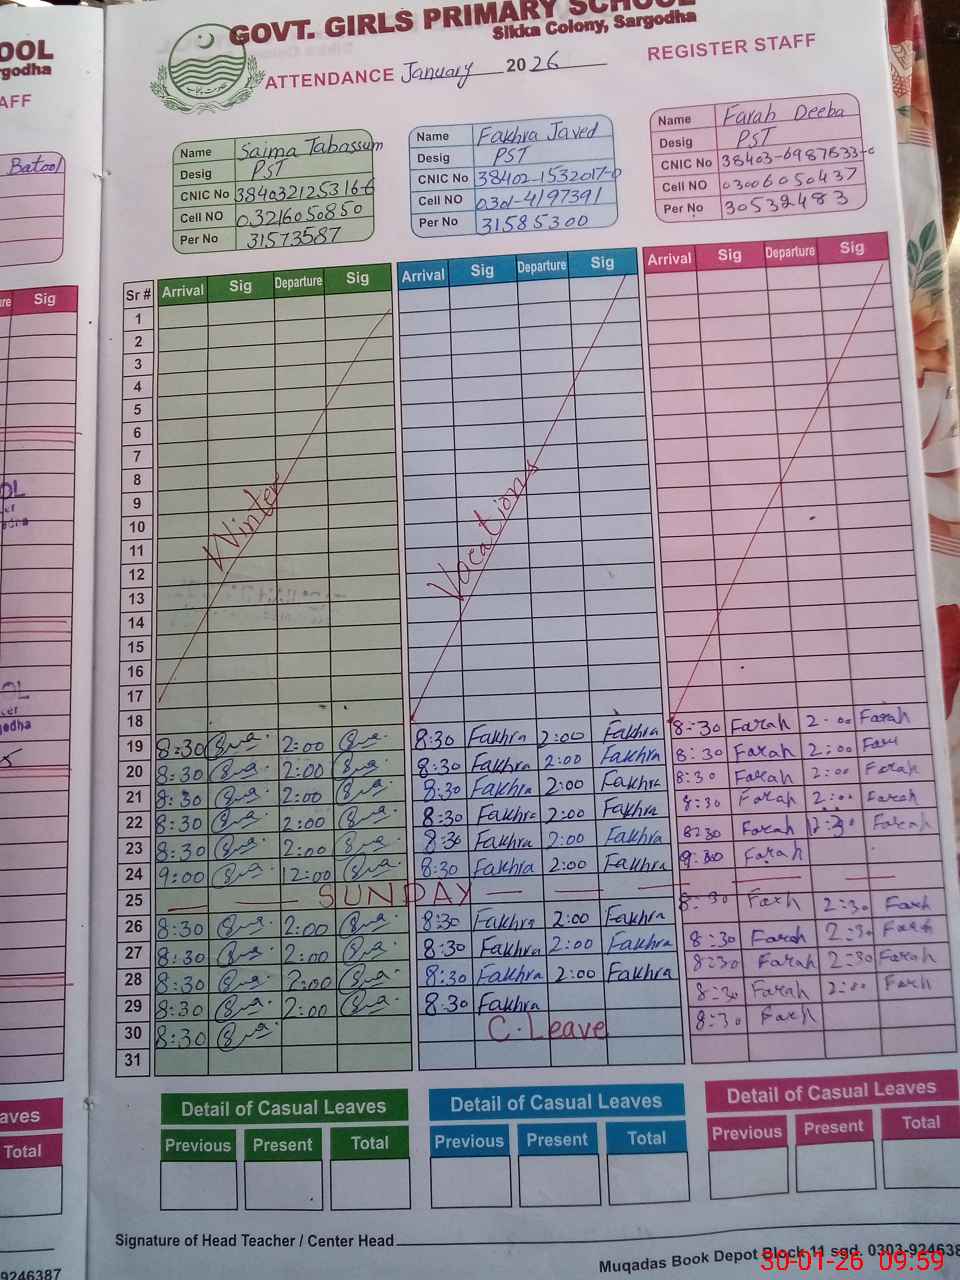 GOVT. GIRLS PRIMARY SCHOOL
Sikka Colony, Sargodha
ATTENDANCE January 2026
REGISTER STAFF
OOL
rgodha
AFF
Batool
Name Saima Tabassum
Desig PST
CNIC No 3840321253166
Cell NO 03216050850
Per No 31573587
Name Fakhra Javed
Desig PST
CNIC No 38402-1532017-0
Cell NO 0301-4197391
Per No 31585300
Name Farah Deeba
Desig PST
CNIC No
Cell NO 03006050437
Per No 30532483
re Sig
Sr # Arrival Sig Departure Sig Arrival Sig Departure Sig Arrival Sig Departure Sig
1
2
3
4
5
6
7
8
9
10
11
12
13
14
15
16
17
18
Winter Vocations
19 8:30 2:00 8:30 Fakhra 2:00 Fakhra 8:30 Farah 2:00 Farah
20 8:30 2:00 8:30 Fakhra 2:00 Fakhra 8:30 Farah 2:00
21 8:30 2:00 8:30 Fakhra 2:00 Fakhra 8:30 Farah 2:00 Farah
22 8:30 2:00 8:30 Fakhra 2:00 Fakhra 8:30 Farah 2:00 Farah
23 8:30 2:00 8:30 Fakhra 2:00 Fakhra 8:30 Farah 12:30 Farah
24 9:00 12:00 8:30 Fakhra 2:00 Fakhra 9:30 Farah
25 SUNDAY
26 8:30 2:00 8:30 Fakhra 2:00 Fakhra 8:30 Farh 2:30 Farh
27 8:30 2:00 8:30 Fakhra 2:00 Fakhra 8:30 Farah 2:30 Farah
28 8:30 2:00 8:30 Fakhra 2:00 Fakhra 8:30 Farah 2:30 Farah
29 8:30 2:00 8:30 Fakhra 8:30 Farah 2:00 Farh
30 8:30 C. Leave 8:30 Farh
31
Detail of Casual Leaves Detail of Casual Leaves Detail of Casual Leaves
Previous Present Total Previous Present Total Previous Present Total
aves
Total
Signature of Head Teacher / Center Head
Muqadas Book Depot Block 11 sgd. 0303-924638
9246387
30-01-26 09:59